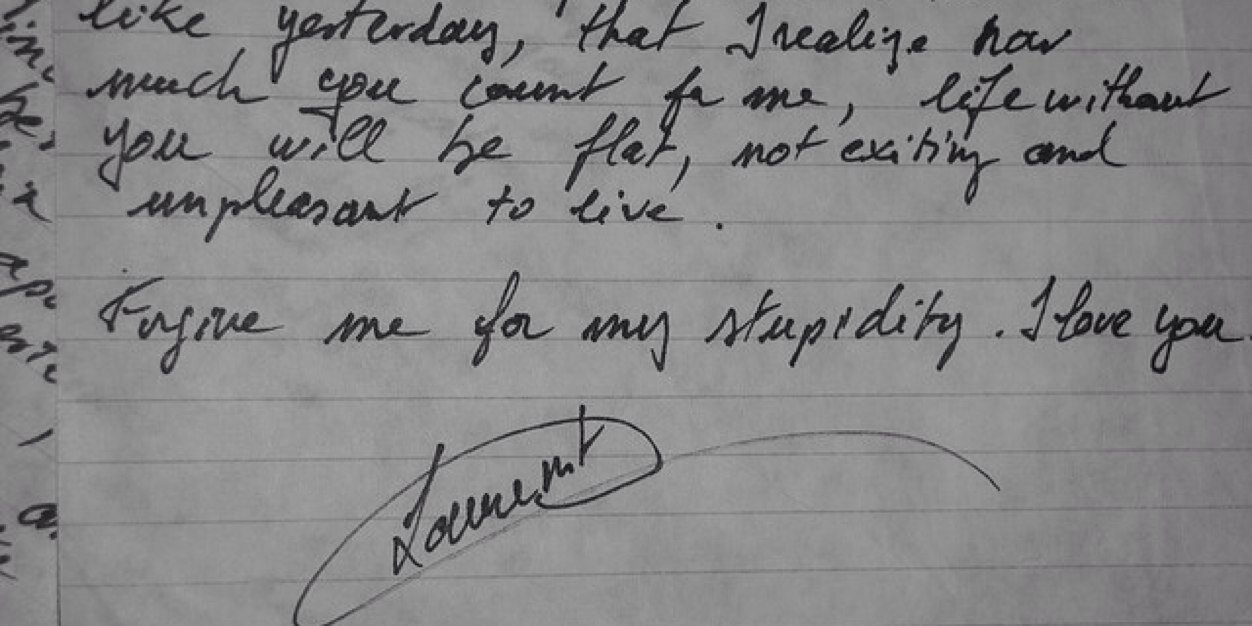 like yesterday, that I realize how
much you count for me, life without
you will be flat, not exiting and
unpleasant to live.
Forgive me for my stupidity. I love you.
Laurent